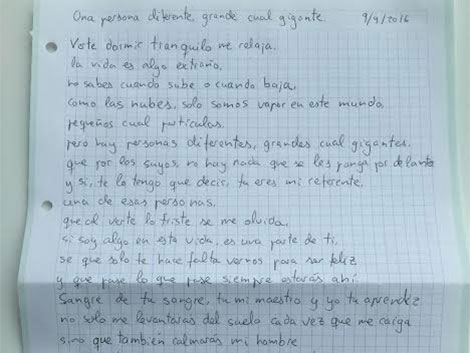 Una persona diferente, grande cual gigante. 9/9/2016
Verte dormir tranquilo me relaja.
la vida es algo extraño,
no sabes cuando sube o cuando baja,
como las nubes, solo somos vapor en este mundo,
pequeños cual partículas.
pero hay personas diferentes, grandes cual gigantes.
que por los suyos, no hay nada que se les ponga por delante
y si, te lo tengo que decir, tu eres mi referente.
una de esas personas.
que al verte lo triste se me olvida,
si soy algo en esta vida, es una parte de ti,
se que solo te hace falta vernos para ser feliz
y que pase lo que pase siempre estarás ahí
Sangre de tu sangre, tu mi maestro y yo tu aprendiz
no solo me levantaras del suelo cada vez que me caiga
sino que también calmaras mi hambre